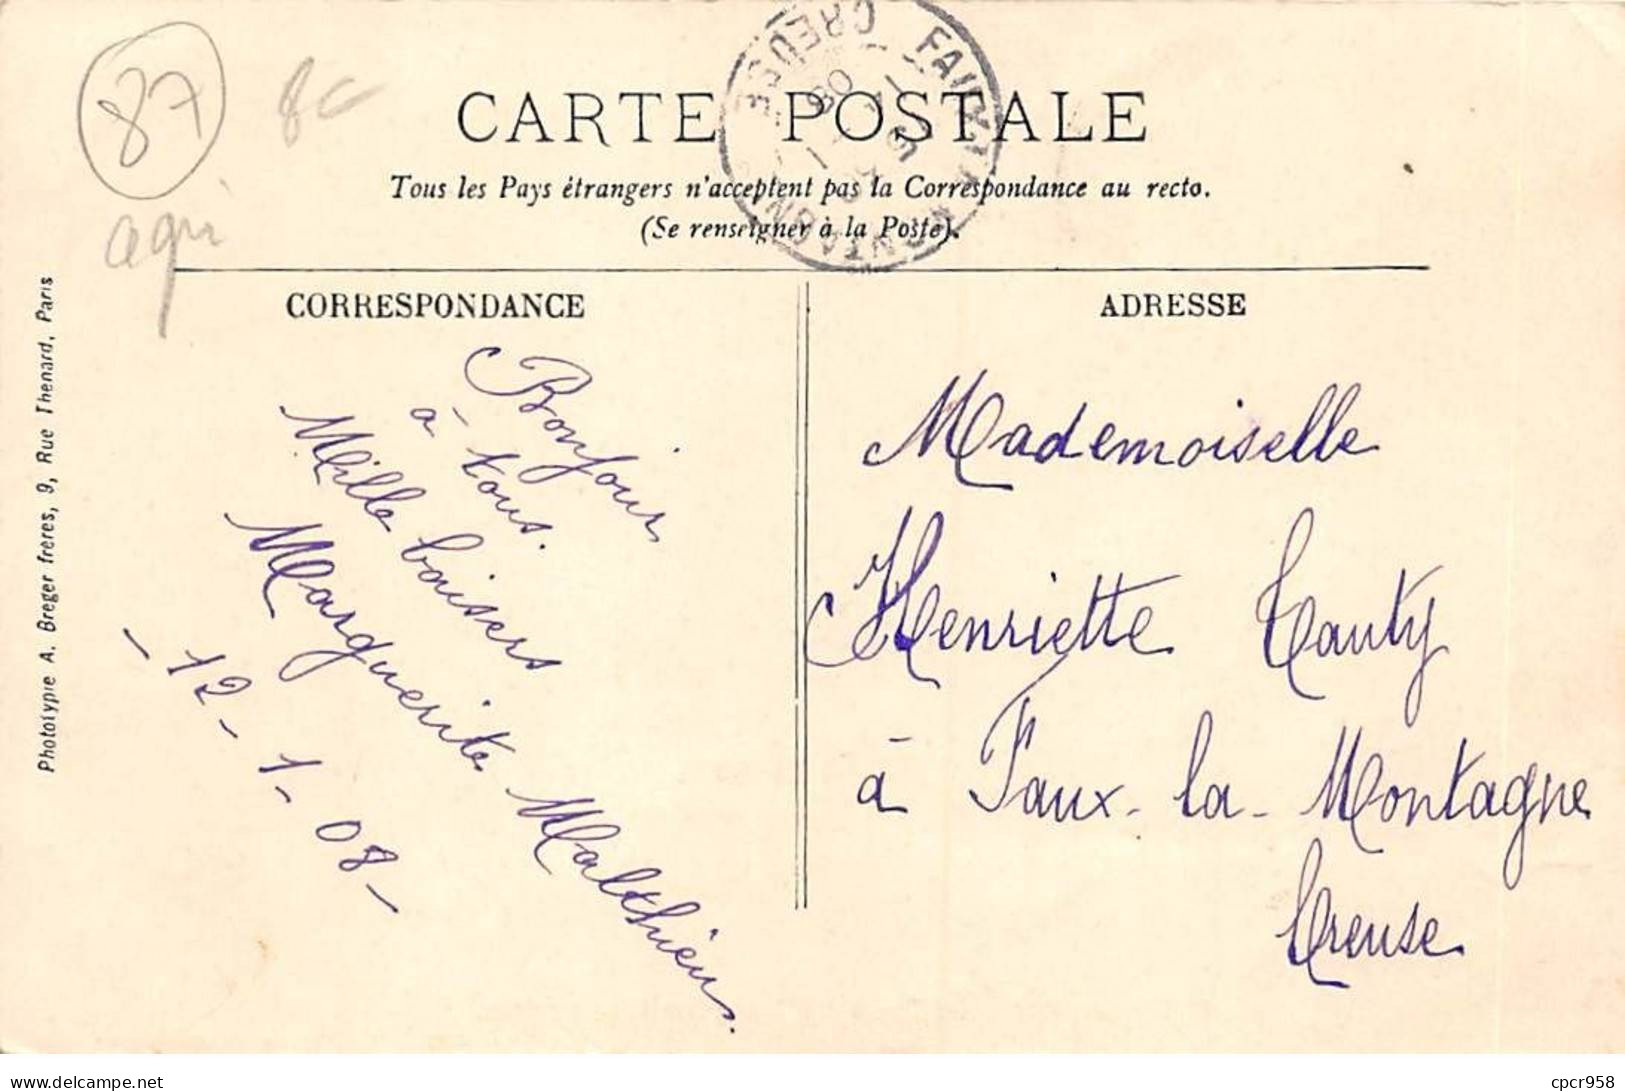 87
8c
agri
CARTE POSTALE
Tous les Pays étrangers n'acceptent pas la Correspondance au recto.
(Se renseigner à la Poste).
CREUSE
CORRESPONDANCE
Bonjour
à tous.
Mille baisers
Marguerite Malthieu.
- 12 - 1 - 08 -
ADRESSE
Mademoiselle
Henriette Tauty
à Faux-la-Montagne
Creuse
Phototypie A. Breger frères, 9, Rue Thenard, Paris
delcampe.net
cpcr958